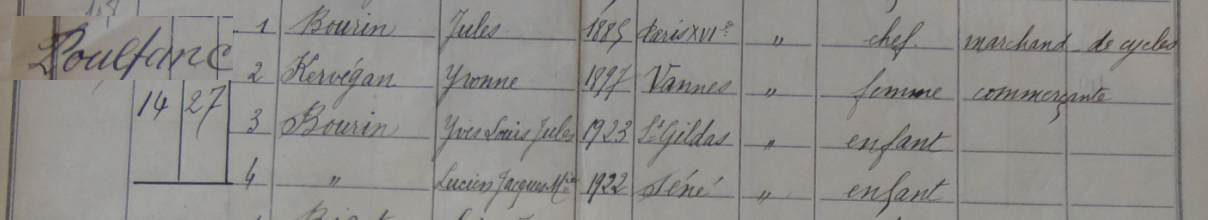 1 Bourin Jules 1885 Paris XVIe " chef marchand de cycles
Poulfanc
2 Kervégan Yvonne 1897 Vannes " femme commerçante
14 27
3 Bourin Yves Louis Jules 1923 St Gildas " enfant
4 " Lucien Jacques Mie 1922 Séné " enfant